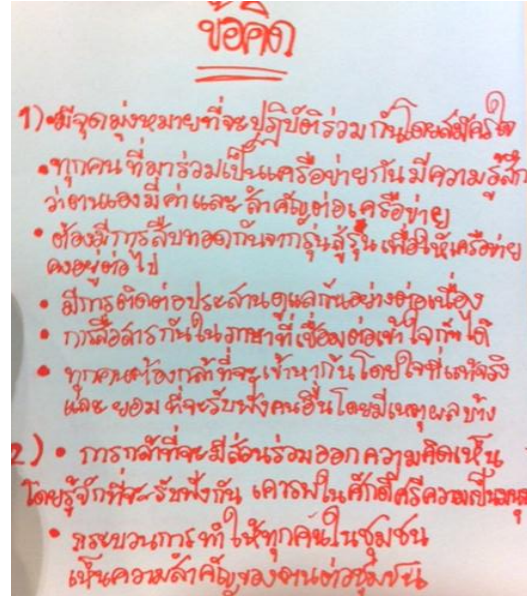 ข้อคิด
1) • มีจุดมุ่งหมายที่จะปฏิบัติร่วมกันโดยสมัครใจ
• ทุกคนที่มาร่วมเป็นเครือข่ายกันมีความรู้สึก
ว่าตนเองมีค่าและสำคัญต่อเครือข่าย
• ต้องมีการสืบทอดกันจากรุ่นสู่รุ่น เพื่อให้เครือข่าย
คงอยู่ต่อไป
• มีการติดต่อประสานดูแลกันอย่างต่อเนื่อง
• การสื่อสารกันในภาษาที่เชื่อมต่อเข้าใจกันได้
• ทุกคนต้องกล้าที่จะเข้าหากันโดยใจที่แท้จริง
และ ยอมที่จะรับฟังคนอื่นโดยมีเหตุผลบ้าง
2) • การกล้าที่จะมีส่วนร่วมออกความคิดเห็น
โดยรู้จักที่จะรับฟังกัน เคารพในศักดิ์ศรีความเป็นมนุ
• กระบวนการทำให้ทุกคนในชุมชน
เห็นความสำคัญของตนต่อชุมชน